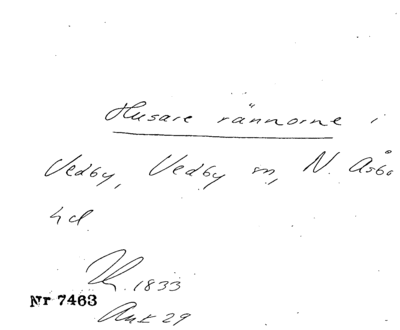 Husare rännorne i
Vedby, Vedby sn, N. Åsbo
hd.
1833
Nr 7463
Ank 29